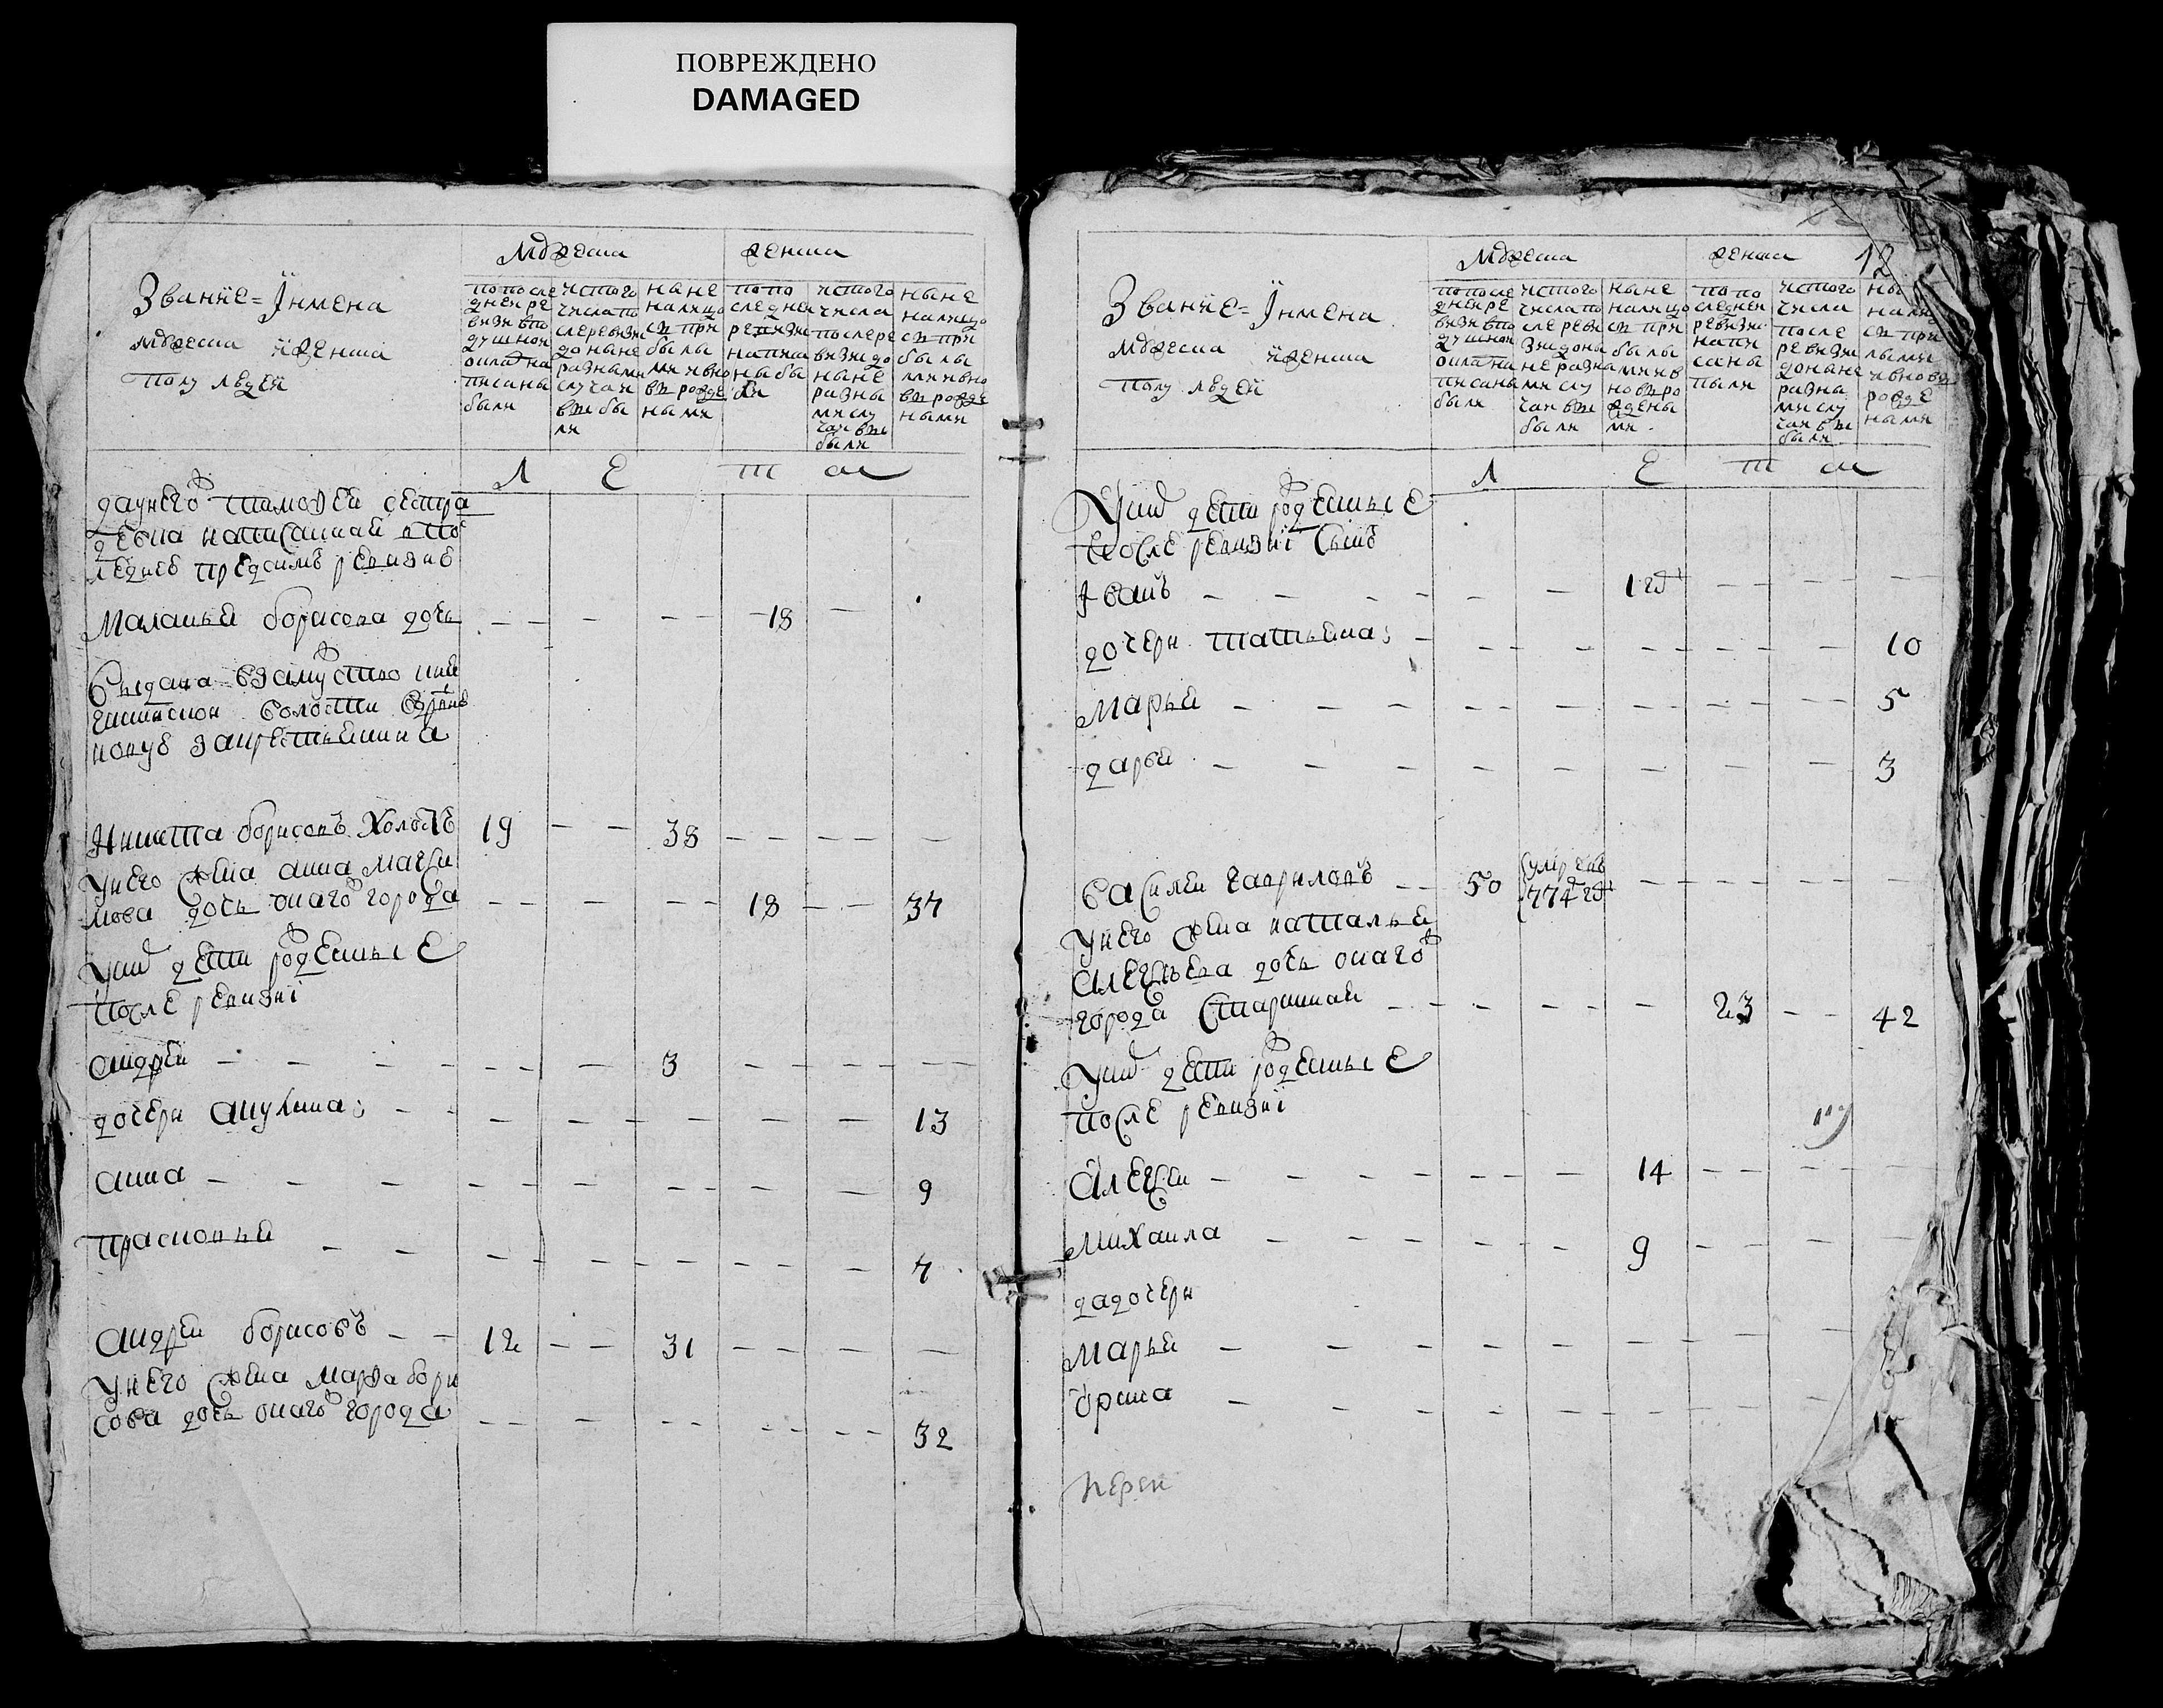 ПОВРЕЖДЕНО
DAMAGED
Званiе = Iимена
мужеска iженска
полу людей
мужеска женска
по после дней ре визи впо душной окладна писаны были
ис того числа по сле ревизи до ныне разными случаи выбы ли
ныне налицо с при былы ми и вно вь рожде ными
по по следней ревизи написа ны бы ли
ис того числа после ре визи до ныне разны ми слу чаи вы были
ныне налицо с при былы ми и вно вь рожде ными
Л Е Т А
даунего таможей сестра
девка написанная впо
леднеб предсимъ ревизиб
Маланья борисова дочь - - - - - 18 -
Выдана взамуство
волости
закрестьянина
Никита борисовъ холостъ 19 - - 38 - - - - -
унего жена анна макси
мова дочь онаго города - - - - - 18 - - 37
уних дети рожденные
после ревизиi
андреи - - - - - - - 3 - - - - -
дочери акулина; - - - - - - - - 13
анна - - - - - - - - - - 9
прасковья - - - - - - - - - - 7
андреи борисовъ - - 12 - - 31 - - - -
унего жена марфа бори
сова дочь онаго города - - - - - - - - - 32
12
Званiе = Iимена
мужеска iженска
полу людей
мужеска женска
по после дней ре визи впо душной окладна писаны были
ис того числа по сле реви зи до ны не разна ми слу чаи вы были
ныне налицо с при былы ми и в но вь ро ждены ми
по по следней ревизи напи саны были
ис того числа после ревизи до ныне разны ми слу чаи вы были
ны нали с при лыми и вновь рожде ными
Л Е Т А
уних дети рожденные
после ревизиi сынъ
Iванъ - - - - - - 12 - - - -
дочери татьяна; - - - - - - - - 10
марья - - - - - - - - - - 5
дарья - - - - - - - - - - 3
василеи гавриловъ - - 50 умре въ 774 гд - - - - -
унего жена наталья
алексеева дочь онаго
города старинная - - - - - - 23 - - 42
уних дети рожденные
после ревизиi
алексеи - - - - - - - 14 - - - -
михаила - - - - - - - 9 - - - -
дадочери
марья - - - - - - - - -
орина - - - - - - - - -